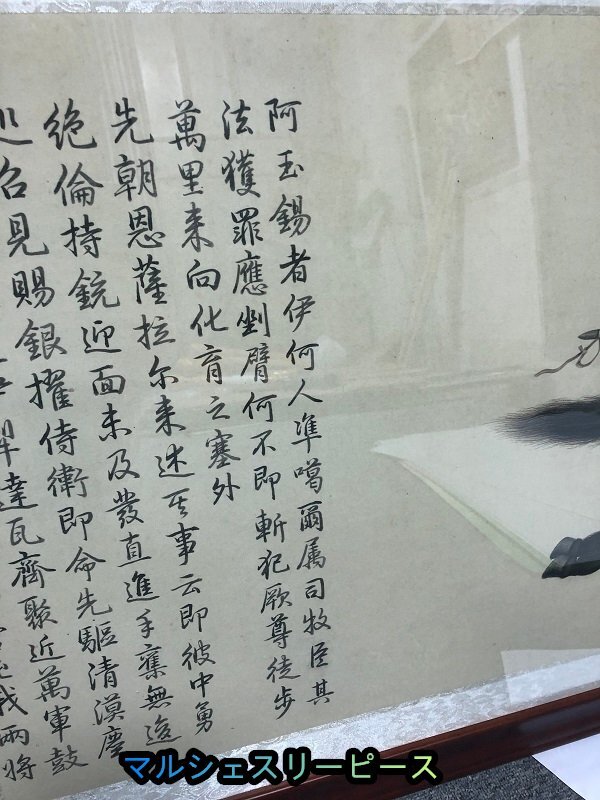 阿玉錫者伊何人準噶爾属司牧臣其
法獲罪應剉臂何不即斬犯厥尊徒步
萬里来向化育之塞外
先朝恩薩拉尔来述其事云即彼中勇
絶倫持銃迎面未及發直進手奪無逡
巡召見賜銀擢侍衛即命先驅清漠塵
犁達瓦齊聚近萬軍鼓
我兩将
マルシェスリーピース